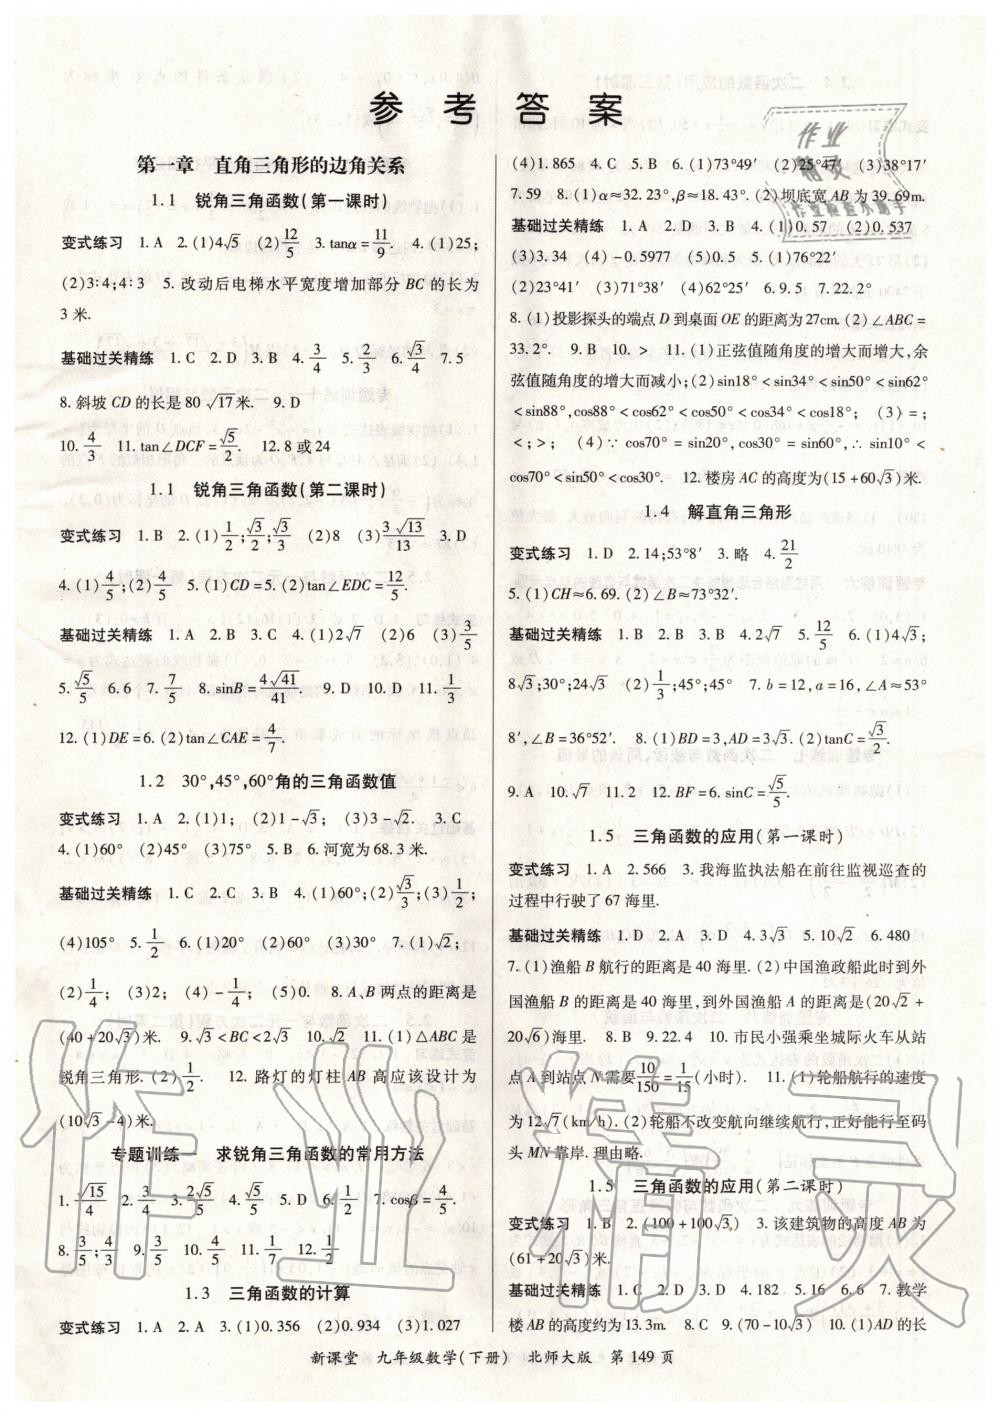 参考答案
第一章　直角三角形的边角关系
1.1　锐角三角函数(第一课时)
变式练习　1. A　2. (1)4√5　(2)12/5　3. tanα=11/9.　4. (1)25;
(2)3∶4;4∶3　5. 改动后电梯水平宽度增加部分 BC 的长为
3 米.
基础过关精练　1. C　2. D　3. B　4. 3/4　5. 2/3　6. √3/4　7. 5
8. 斜坡 CD 的长是80 √17米.　9. D
10. 4/3　11. tan∠DCF=√5/2.　12. 8 或 24
1.1　锐角三角函数(第二课时)
变式练习　1. B　2. (1)1/2;√3/2;√3/3　(2)8　(3)3√13/13　3. D
4. (1)4/5;(2)4/5　5. (1)CD=5. (2)tan∠EDC=12/5.
基础过关精练　1. A　2. B　3. C　4. (1)2√7　(2)6　(3)3/5
5. √5/5　6. 6　7. 7/5　8. sinB=4√41/41　9. D　10. D　11. 1/3
12. (1)DE=6. (2)tan∠CAE=4/7.
1.2　30°,45°,60°角的三角函数值
变式练习　1. A　2. (1)1;　(2)1-√3;　(3)3-√2.　3. C
4. (1)60°　(2)45°　(3)75°　5. B　6. 河宽为68.3米.
基础过关精练　1. C　2. C　3. B　4. (1)60°;(2)√3/3;(3)1/2;
(4)105°　5. 1/2　6. (1)20°　(2)60°　(3)30°　7. (1)√2;
(2)1/4;　(3)2;　(4)-1/4;　(5)0.　8. A、B 两点的距离是
(40+20√3)米.　9. √3<BC<2√3　10. √2　11. (1)△ABC 是
锐角三角形. (2)1/2.　12. 路灯的灯柱 AB 高应该设计为
(10√3-4)米.
专题训练一　求锐角三角函数的常用方法
1. √15/4　2. 3/4　3. 2√5/5　4. √5/5　5. D　6. 1/2　7. cosβ=4/5.
8. 3/5;4/3　9. 3/5　10. 4/5　11. 1/7　12. 1/2
1.3　三角函数的计算
变式练习　1. A　2. A　3. (1)0.356　(2)0.934　(3)1.027
(4)1.865　4. C　5. B　6. (1)73°49′　(2)25°47′　(3)38°17′
7. 59　8. (1)α≈32.23°,β≈18.43°. (2)坝底宽 AB 为39.69m.
基础过关精练　1. A　2. D　3. B　4. (1)0.57　(2)0.537
(3)3.34　(4)-0.5977　(5)0.5　5. (1)76°22′
(2)23°41′　(3)71°38′　(4)62°25′　6. 9.5　7. 22.2°
8. (1)投影探头的端点 D 到桌面 OE 的距离为27cm. (2)∠ABC=
33.2°.　9. B　10. >　11. (1)正弦值随角度的增大而增大,余
弦值随角度的增大而减小;(2)sin18°<sin34°<sin50°<sin62°
<sin88°,cos88°<cos62°<cos50°<cos34°<cos18°;　(3)=;
<;>;　(4)∵cos70°=sin20°,cos30°=sin60°,∴sin10°<
cos70°<sin50°<cos30°.　12. 楼房 AC 的高度为(15+60√3)米.
1.4　解直角三角形
变式练习　1. D　2. 14;53°8′　3. 略　4. 21/2
5. (1)CH≈6.69. (2)∠B≈73°32′.
基础过关精练　1. B　2. B　3. A　4. 2√7　5. 12/5　6. (1)4√3;
8√3;30°;24√3　(2)1/3;45°;45°　7. b=12,a=16,∠A≈53°
8′,∠B=36°52′.　8. (1)BD=3,AD=3√3. (2)tanC=√3/2.
9. A　10. √7　11. 2　12. BF=6. sinC=√5/5.
1.5　三角函数的应用(第一课时)
变式练习　1. A　2. 566　3. 我海监执法船在前往监视巡查的
过程中行驶了67海里.
基础过关精练　1. D　2. A　3. D　4. 3√3　5. 10√2　6. 480
7. (1)渔船 B 航行的距离是40海里. (2)中国渔政船此时到外
国渔船 B 的距离是40海里,到外国渔船 A 的距离是(20√2+
20√6)海里.　8. B　9. 22.4　10. 市民小强乘坐城际火车从站
点 A 到站点 N 需要10/150=1/15(小时).　11. (1)轮船航行的速度
为12√7(km/h). (2)轮船不改变航向继续航行,正好能行至码
头 MN 靠岸. 理由略.
1.5　三角函数的应用(第二课时)
变式练习　1. B　2. (100+100√3)　3. 该建筑物的高度 AB 为
(61+20√3)米.
基础过关精练　1. C　2. D　3. D　4. 182　5. 16　6. 6　7. 教学
楼 AB 的高度约为13.3m.　8. C　9. (70-10√3)　10. (1)AD 的长
新课堂　九年级数学(下册)　北师大版　第149页
作业
精灵
作业检查小助手
作业精灵